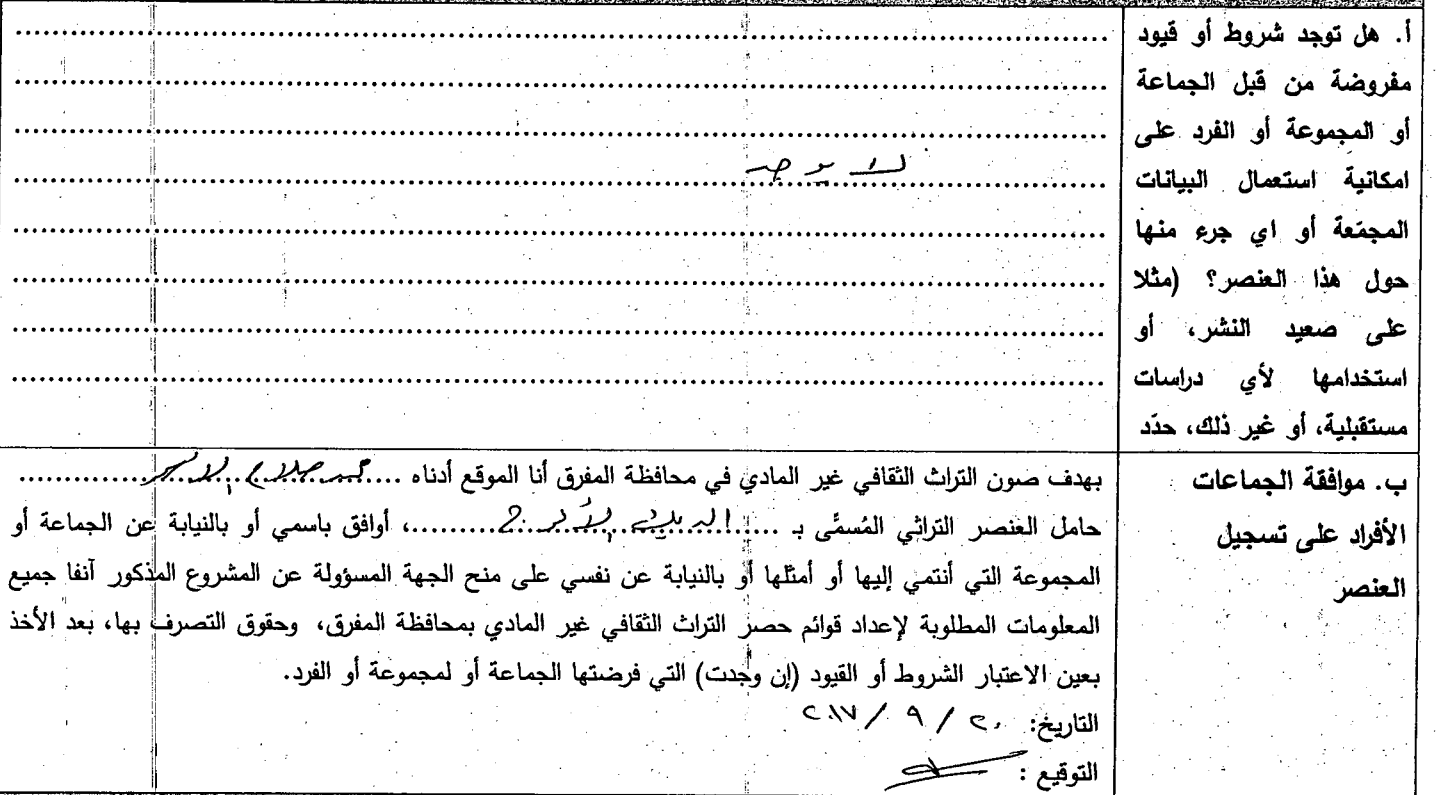 أ. هل توجد شروط أو قيود
مفروضة من قبل الجماعة
أو المجموعة أو الفرد على
امكانية استعمال البيانات
المجمّعة أو اي جرء منها
حول هذا العنصر؟ (مثلا
على صعيد النشر، أو
استخدامها لأي دراسات
مستقبلية، أو غير ذلك، حدّد
لا يوجد
ب. موافقة الجماعات
الأفراد على تسجيل
العنصر
بهدف صون التراث الثقافي غير المادي في محافظة المفرق أنا الموقع أدناه
حامل العنصر التراثي المُسمَّى بـ ، أوافق باسمي أو بالنيابة عن الجماعة أو
المجموعة التي أنتمي إليها أو أمثلها أو بالنيابة عن نفسي على منح الجهة المسؤولة عن المشروع المذكور آنفا جميع
المعلومات المطلوبة لإعداد قوائم حصر التراث الثقافي غير المادي بمحافظة المفرق، وحقوق التصرف بها، بعد الأخذ
بعين الاعتبار الشروط أو القيود (إن وجدت) التي فرضتها الجماعة أو لمجموعة أو الفرد.
التاريخ: ٢٠ / ٩ / ٢٠١٧
التوقيع :